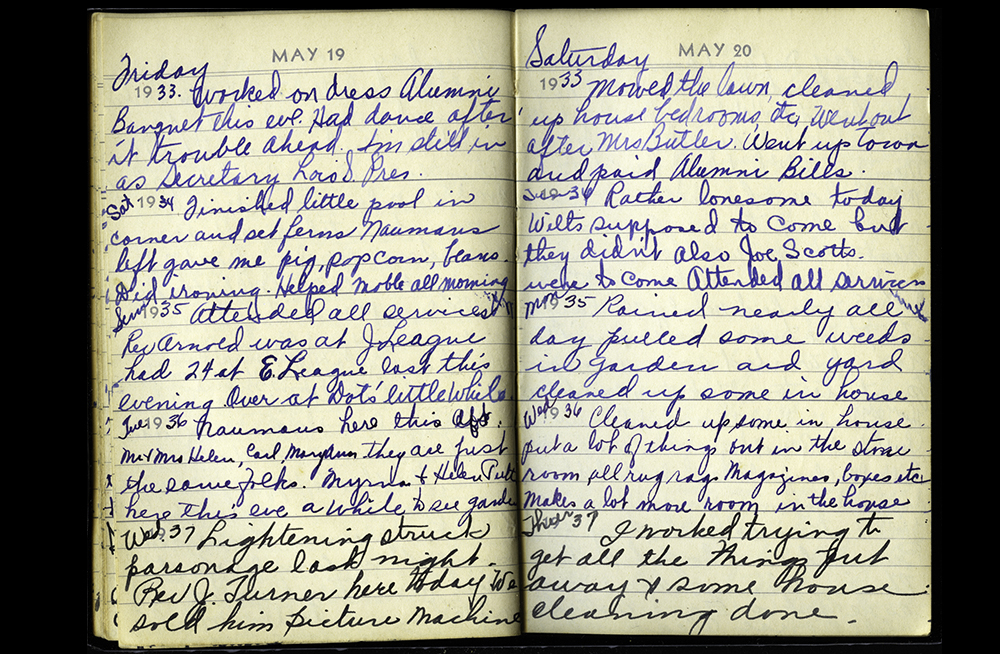 MAY 19
Friday
1933. Worked on dress Alumni
Banquet this eve. Had dance after
it trouble ahead. I'm still in
as Secretary Lois S. Pres.
Sat 1934 Finished little pool in
corner and set ferns Naumans
left gave me pig, popcorn, beans.
Did ironing. Helped Moble all morning
Sun 1935 Attended all services
Rev Arnold was at J League
had 24 at E. League last this
evening Over at Dot's little while.
Tue 1936 Naumans here this aft.
Mr & Mrs Helen, Carl, Maryann they are just
the same folks. Myrna & Helen
here this eve a while to see garden
Wed. 37 Lightening struck
parsonage last night.
Rev J. Turner here today We
sold him picture machine
MAY 20
Saturday
1933 Mowed the lawn, cleaned
up house bedrooms, etc, Went out
after Mrs Butler. Went up town
and paid Alumni Bills.
34 Rather lonesome today
Wilts supposed to come but
they didn't also Joe Scotts.
were to come Attended all services
Mon 1935 Rained nearly all
day pulled some weeds
in garden and yard
cleaned up some in house
Wed 1936 Cleaned up some in house.
put a lot of things out in the store
room all rug rags Magazines, boxes etc
Makes a lot more room in the house
Thur 37 I worked trying to
get all the things put
away & some house
cleaning done.